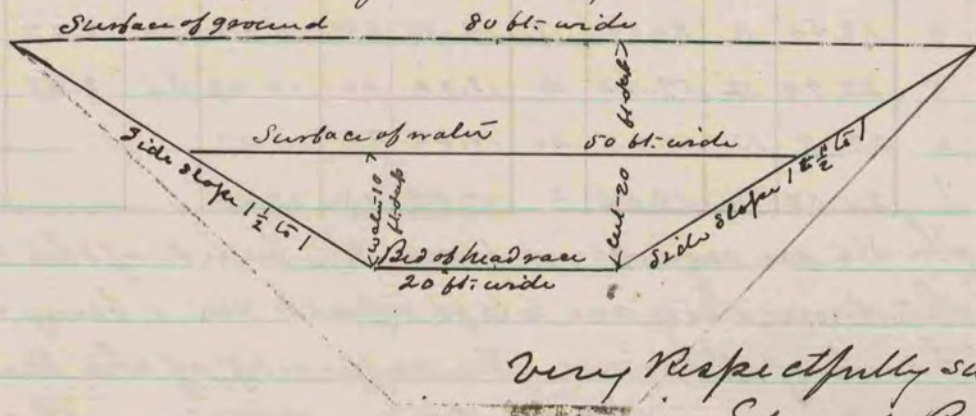 Surface of ground 80 ft. wide
ft. deep
Surface of water 50 ft. wide
Side Slope 1 1/2 to 1
water 10
ft. deep
cut-20
Side Slope 1 1/2 to 1
Bed of head race
20 ft. wide
Very Respectfully su